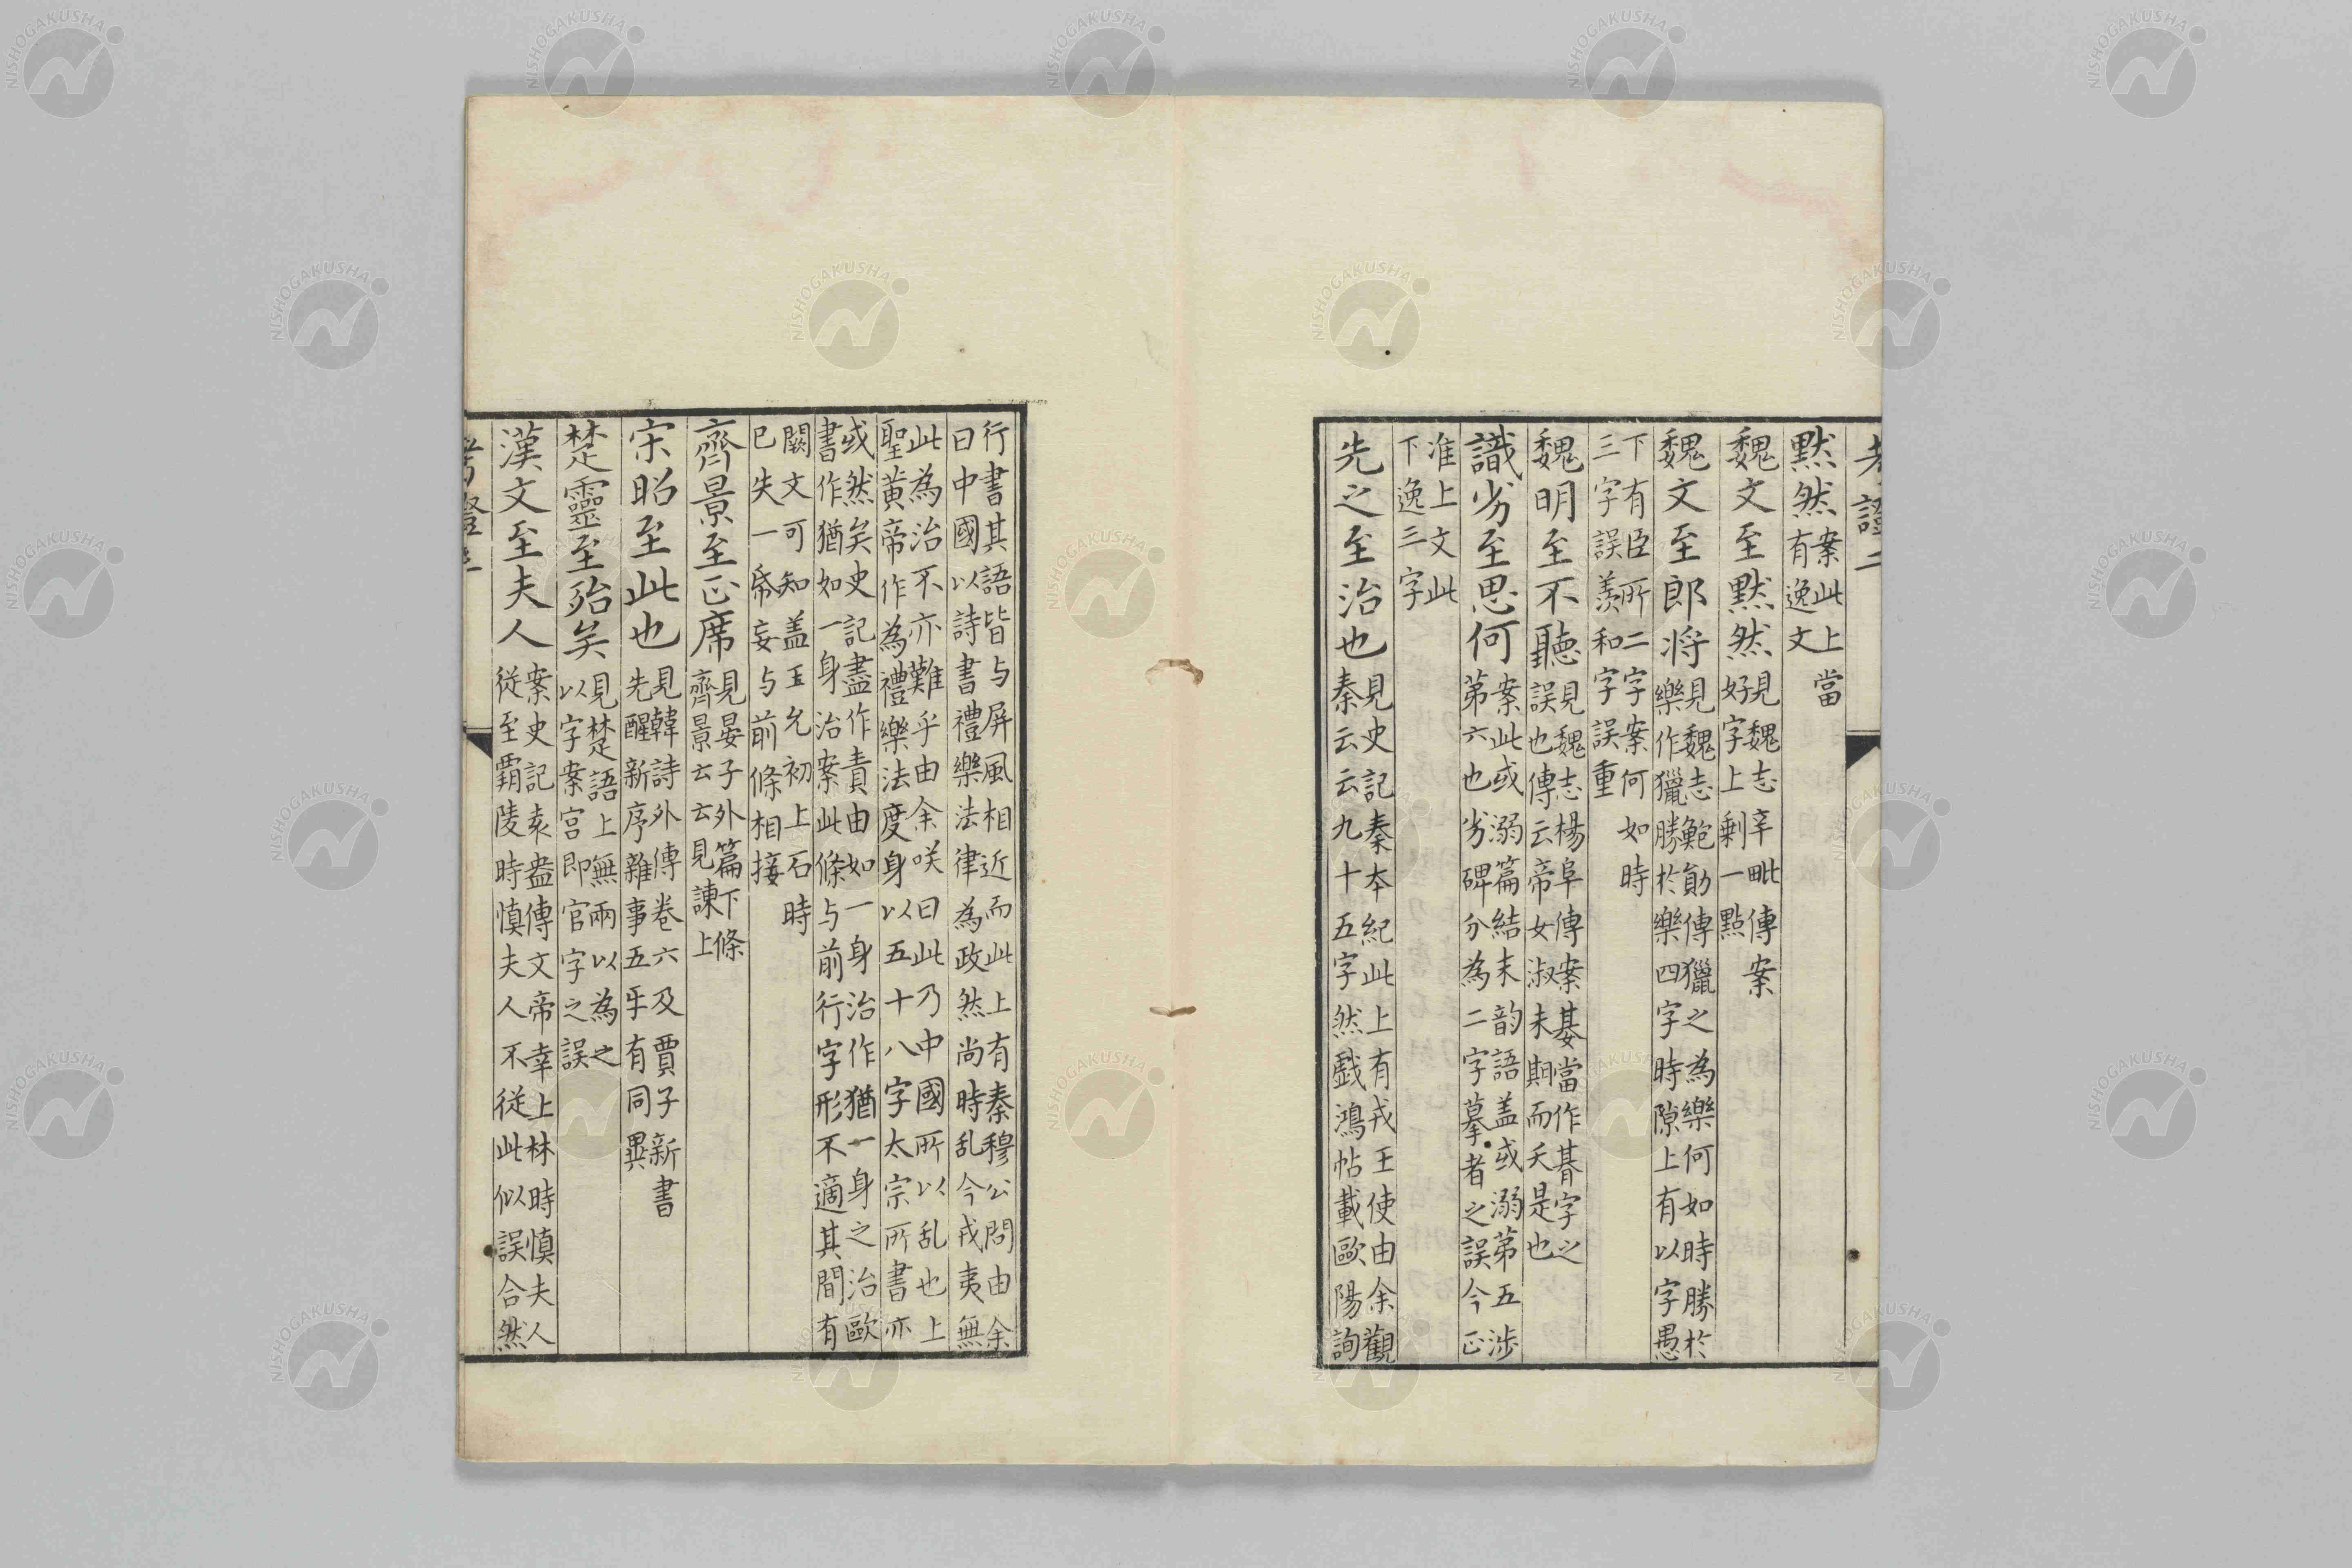 考證二
默然案此上當
有逸文
魏文至默然見魏志辛毗傳案
好字上剩一點
魏文至郎将見魏志鮑勛傳獵之為樂何如時勝於
樂作獵勝於樂四字時隙上有以字愚
下有臣所二字案何如時
三字誤羨和字誤重
魏明至不聽見魏志楊阜傳案朞當作碁字之
誤也傳云帝女淑未期而夭是也
識劣至思何案此或溺篇結末韵語盖或溺第五涉
第六也劣碑分為二字摹者之誤今正
准上文此
下逸三字
先之至治也見史記秦本紀此上有戎王使由余觀
秦云云九十五字然戯鴻帖載歐陽詢
行書其語皆与屏風相近而此上有秦穆公問由余
曰中國以詩書禮樂法律為政然尚時乱今戎夷無
此為治不亦難乎由余咲曰此乃中國所以乱也上
聖黄帝作為禮樂法度身以五十八字太宗所書亦
或然矣史記盡作責由如一身治作猶一身之治歐
書作猶如一身治案此條与前行字形不適其間有
闕文可知盖玉允初上石時
已失一帋妄与前條相接
齊景至正席見晏子外篇下條
齊景云云見諌上
宋昭至此也見韓詩外傳卷六及賈子新書
先醒新序雜事五㸦有同異
楚靈至殆矣見楚語上無兩以為之
以字案宮即官字之誤
漢文至夫人案史記袁盎傳文帝幸上林時慎夫人
従至覇陵時慎夫人不従此似誤合然
NISHOGAKUSHA